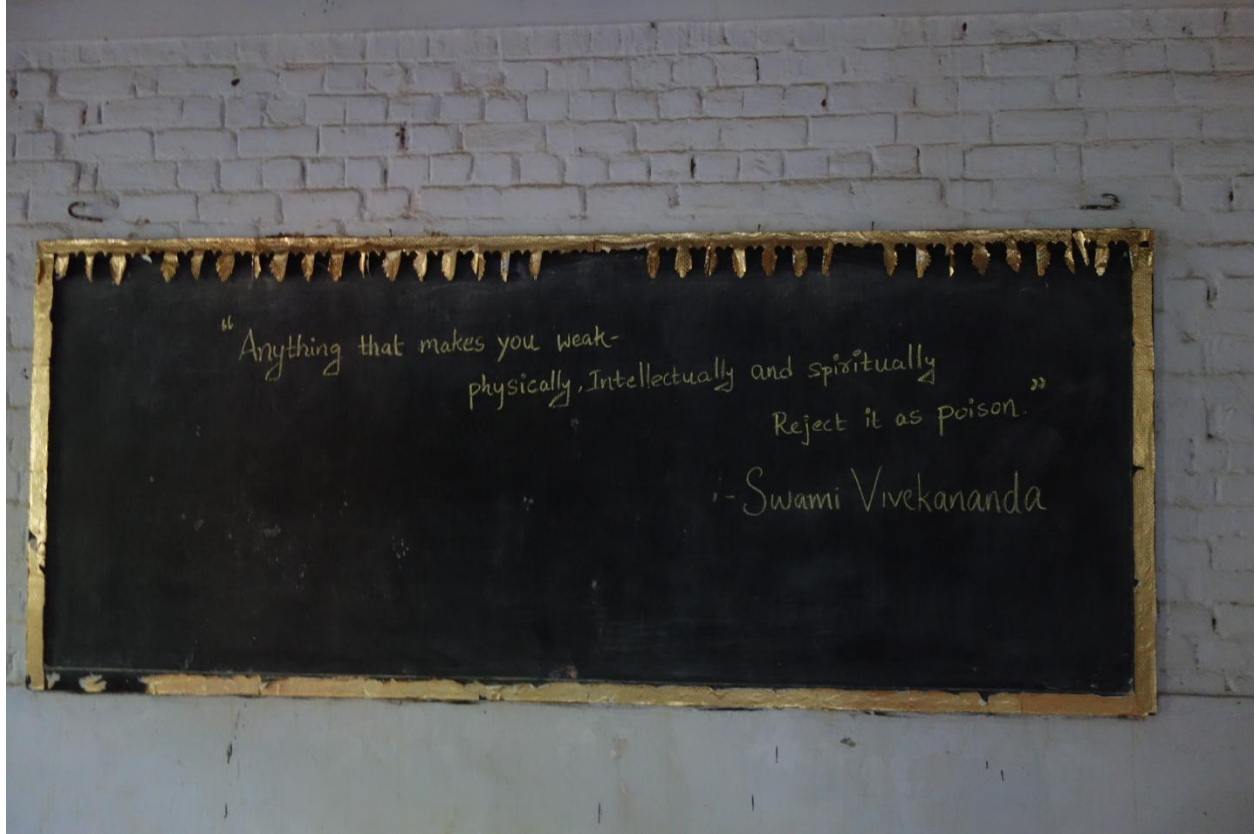 "Anything that makes you weak-
physically, Intellectually and spiritually
Reject it as poison."
:- Swami Vivekananda